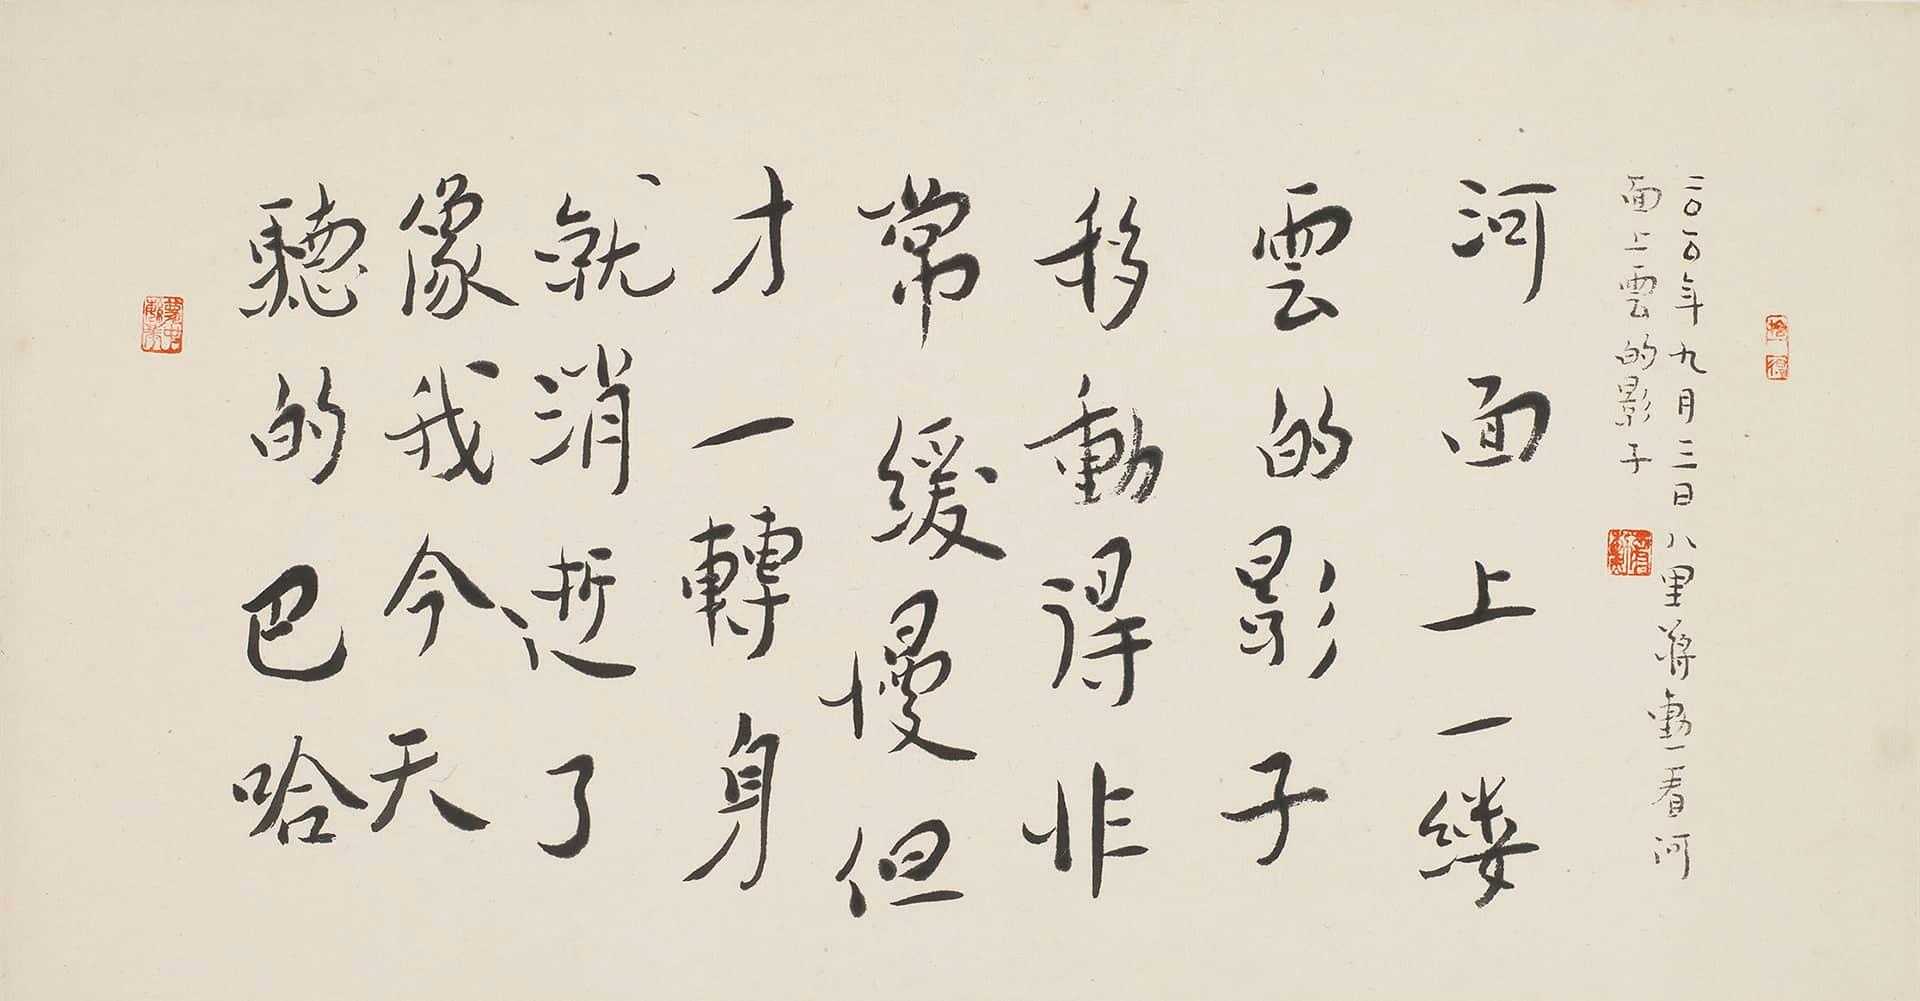 二〇一〇年九月三日八里蔣勳一看河
面上雲的影子
河面上一縷
雲的影子
移動得非
常緩慢但
才一轉身
就消逝了
像我今天
聽的巴哈